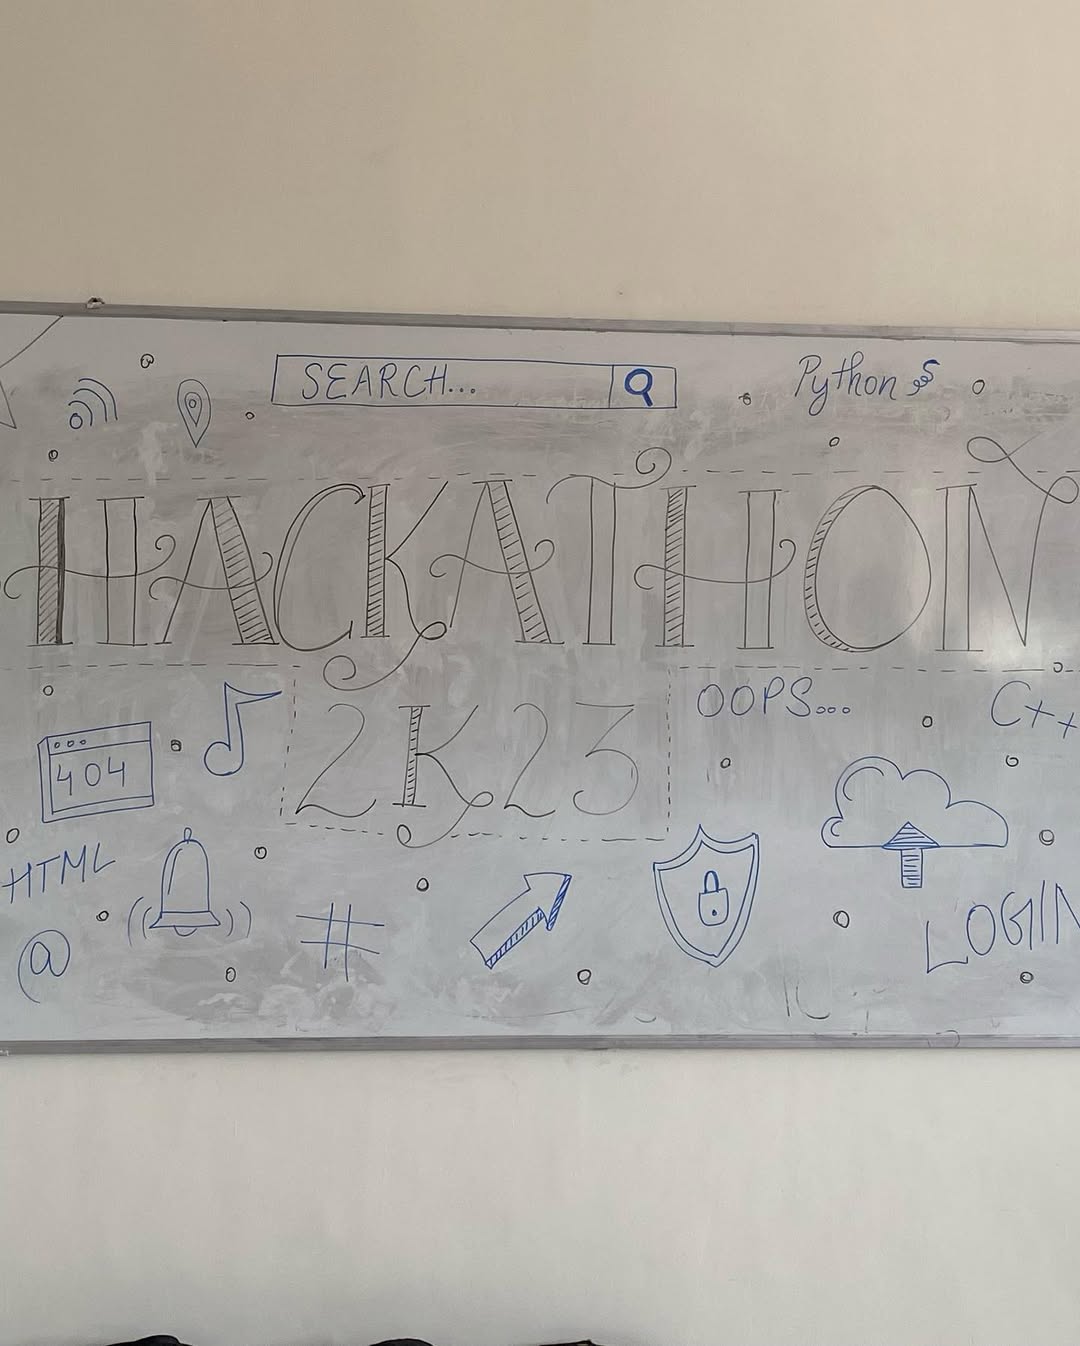 SEARCH...
Python
HACKATHON
2K23
OOPS...
C++
404
HTML
LOGIN
@
#